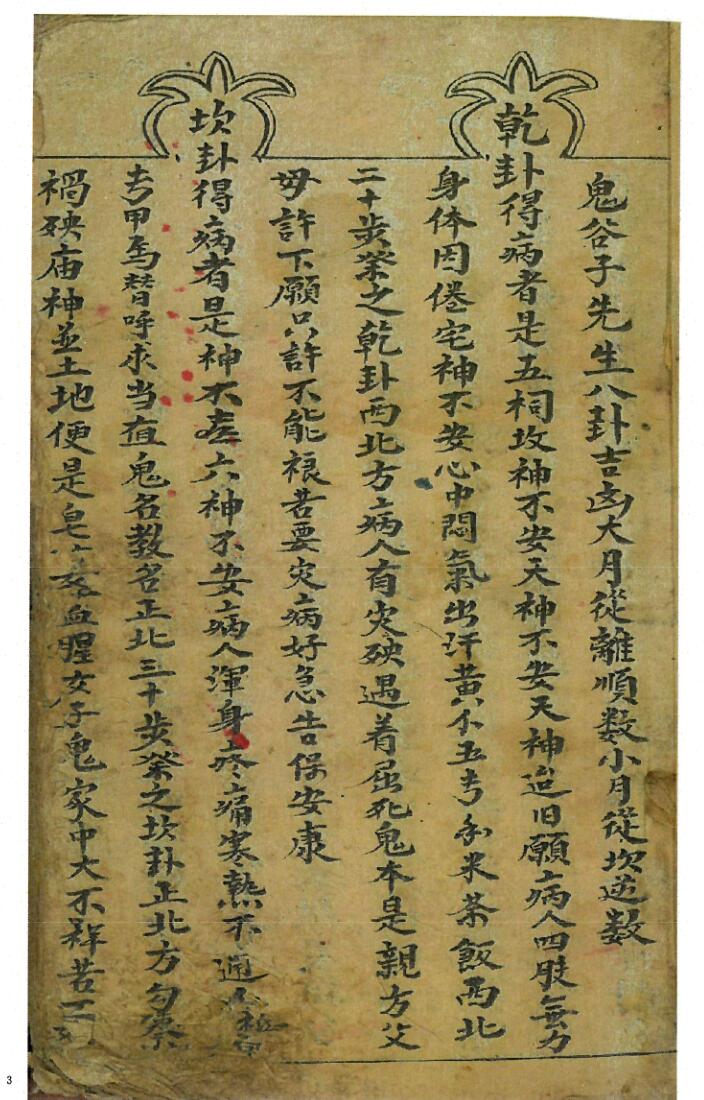 鬼谷子先生八卦吉凶大月從離順数小月從坎逆数
乾卦得病者是五祠坟神不安天神不安天神迨旧願病人四肢無力
身体困倦宅神不安心中悶氣出汗黄仒五寺和米茶飯西北
二十步祭之乾卦西北方病人有灾殃遇着屈死鬼本是親方父
母許下願只許不能裉若要灾病好急告保安康
坎卦得病者是神不安六神不安病人渾身疼痛寒熱不通
寺甲馬替呼求当直鬼名教名正北三十步祭之坎卦正北方
禍殃庙神並土地便是皂血腥女子鬼家中大不祥若
3